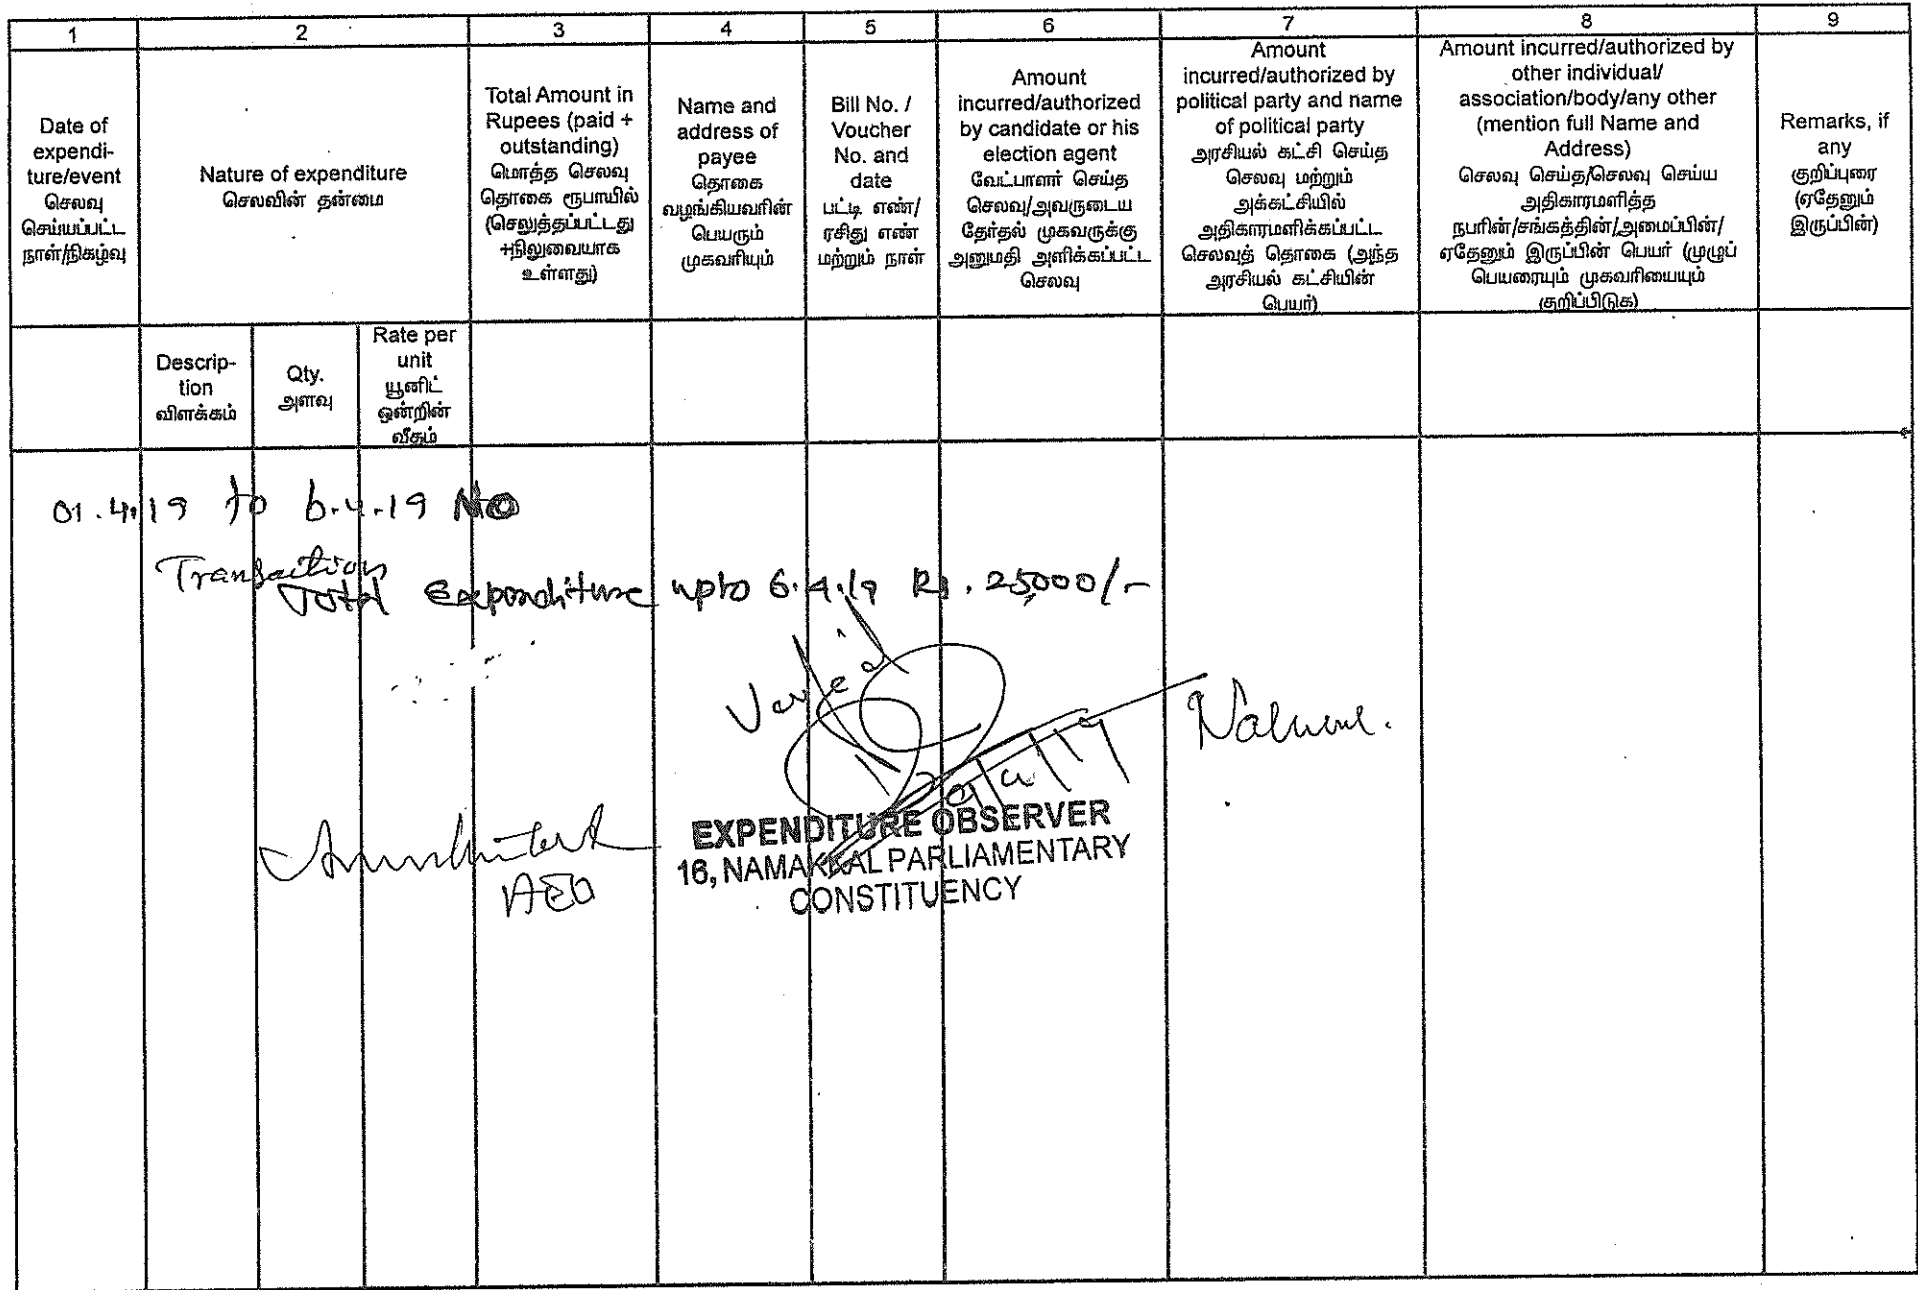 1 2 3 4 5 6 7 8 9
Date of
expendi-
ture/event
செலவு
செய்யப்பட்ட
நாள்/நிகழ்வு
Nature of expenditure
செலவின் தன்மை
Total Amount in
Rupees (paid +
outstanding)
மொத்த செலவு
தொகை ரூபாயில்
(செலுத்தப்பட்டது
+நிலுவையாக
உள்ளது)
Name and
address of
payee
தொகை
வழங்கியவரின்
பெயரும்
முகவரியும்
Bill No. /
Voucher
No. and
date
பட்டி எண்/
ரசிது எண்
மற்றும் நாள்
Amount
incurred/authorized
by candidate or his
election agent
வேட்பாளர் செய்த
செலவு/அவருடைய
தேர்தல் முகவருக்கு
அனுமதி அளிக்கப்பட்ட
செலவு
Amount
incurred/authorized by
political party and name
of political party
அரசியல் கட்சி செய்த
செலவு மற்றும்
அக்கட்சியில்
அதிகாரமளிக்கப்பட்ட
செலவுத் தொகை (அந்த
அரசியல் கட்சியின்
பெயர்)
Amount incurred/authorized by
other individual/
association/body/any other
(mention full Name and
Address)
செலவு செய்த/செலவு செய்ய
அதிகாரமளித்த
நபரின்/சங்கத்தின்/அமைப்பின்/
ஏதேனும் இருப்பின் பெயர் (முழுப்
பெயரையும் முகவரியையும்
குறிப்பிடுக)
Remarks, if
any
குறிப்புரை
(ஏதேனும்
இருப்பின்)
Descrip-
tion
விளக்கம்
Qty.
அளவு
Rate per
unit
யூனிட்
ஒன்றின்
வீதம்
01.4.19 to 6.4.19 No
Transaction
Total Expenditure upto 6.4.19 Rs. 25,000/-
AEO
EXPENDITURE OBSERVER
16, NAMAKKAL PARLIAMENTARY
CONSTITUENCY